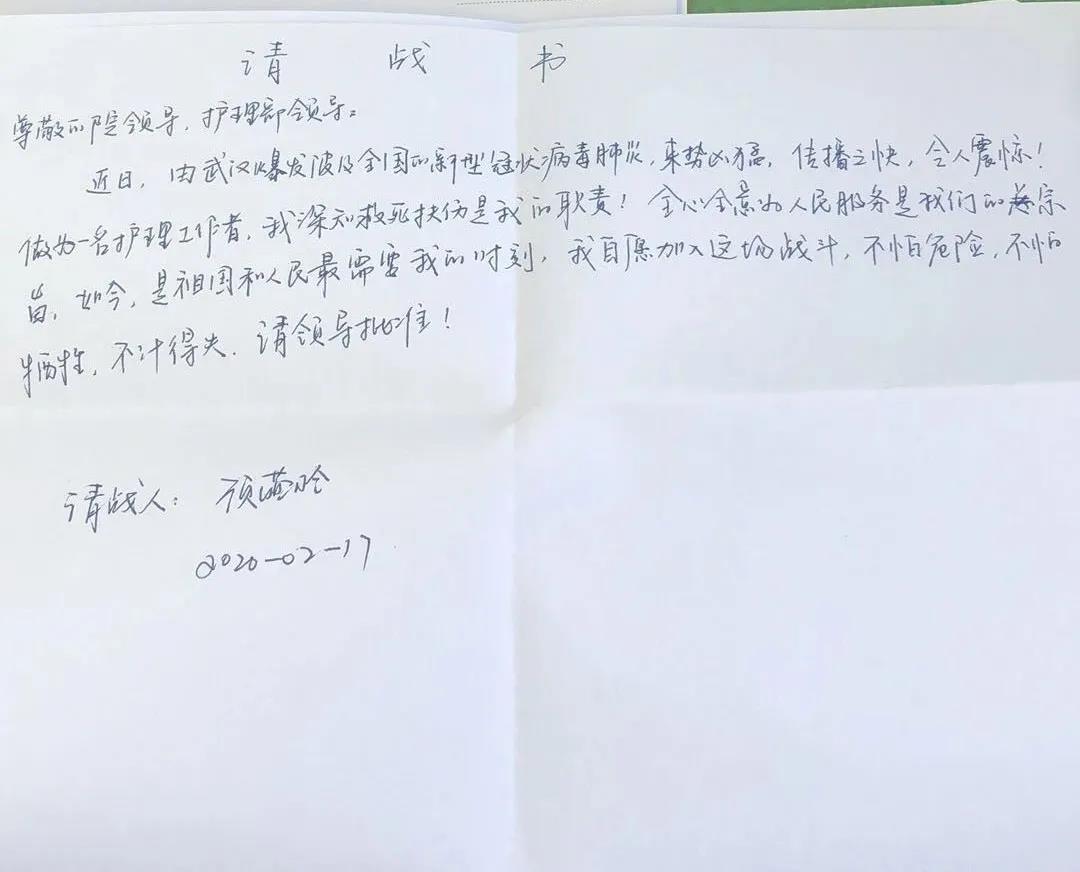 请战书
尊敬的院领导，护理部领导：
近日，由武汉爆发波及全国的新型冠状病毒肺炎，来势凶猛，传播之快，令人震惊！
做为一名护理工作者，我深知救死扶伤是我的职责！全心全意为人民服务是我们的宗
旨，如今，是祖国和人民最需要我的时刻，我自愿加入这场战斗，不怕危险，不怕
牺牲，不计得失．请领导批准！
请战人：
2020-02-17